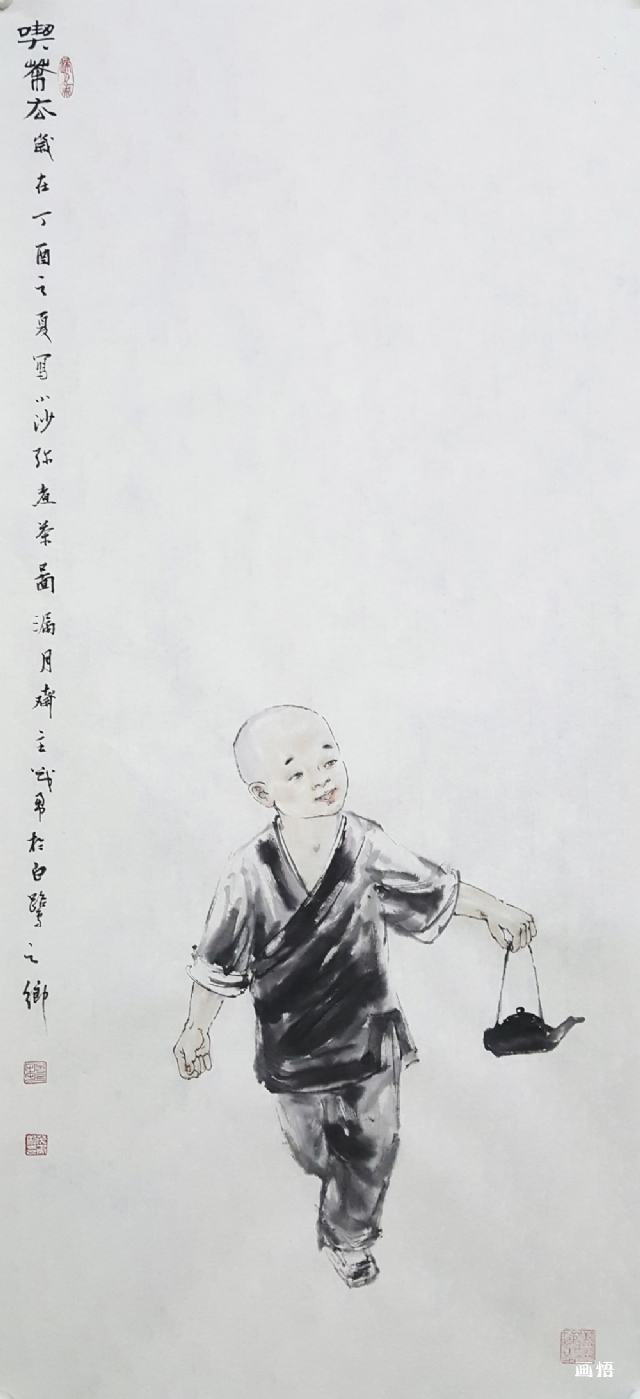 喫茶去歲在丁酉之夏寫小沙弥煮茶圖漏月齋主於白鷺之鄉
画悟